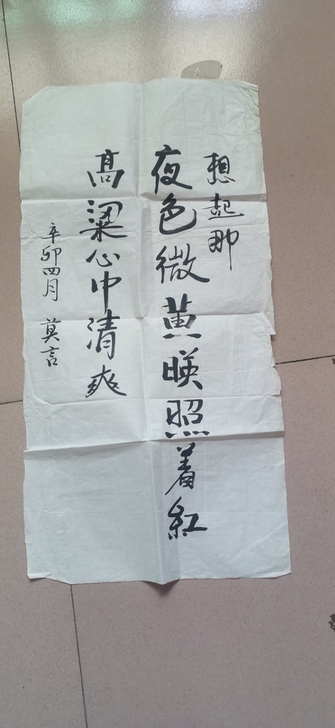 想起那
夜色微黄暎照着红
高粱心中清爽
辛卯四月 莫言